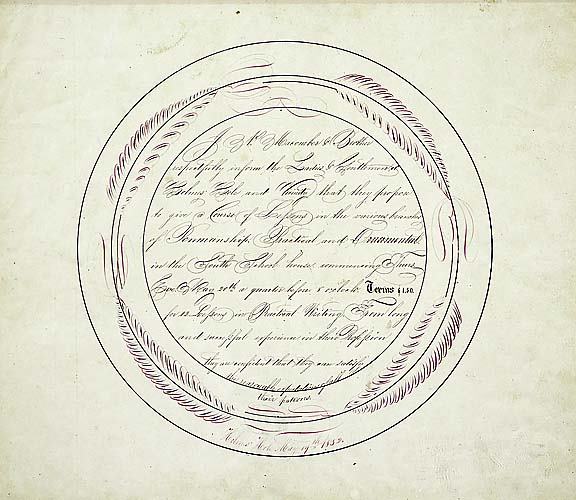 J. Mc. Macomber & Brother
respectfully inform the Ladies & Gentlemen of
Holms' Hole and Vicinity that they propose
to give a Course of Lessons in the various branches
of Penmanship, Practical and Ornamental
in the South School house commencing Thurs
Eve, May 20th a quarter before 8 o'clock. Terms $1.50.
for 12 Lessons in Practical Writing. From long
and successful experience in their Profession
they are confident that they can satisfy
the reasonable expectations of all
their patrons.
Holmes' Hole May 19th 1852.